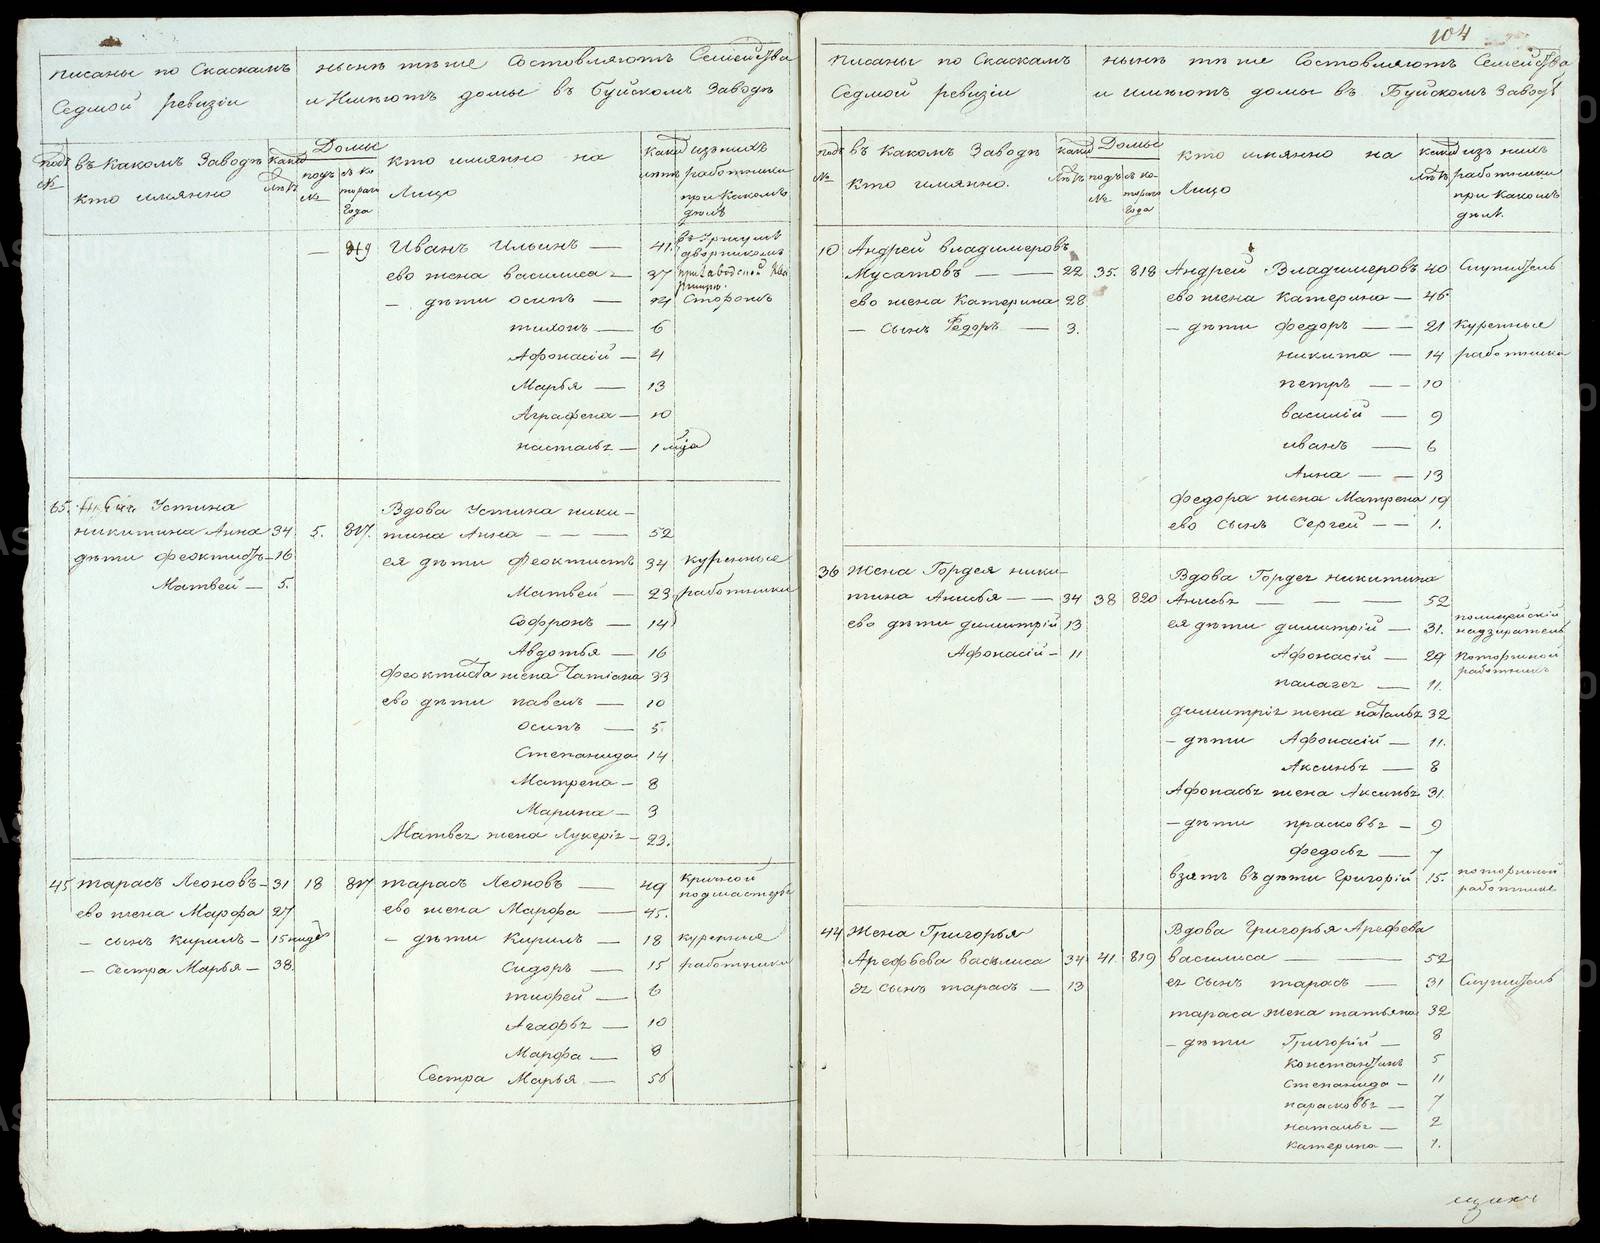 104
писаны по Скаскамъ
Седмой ревизіи
нынѣ тѣ же Состовляютъ Семейства
и Имѣютъ домы въ Буйскомъ Заводѣ
подъ №
въ Какомъ Заводѣ кто имянно
Домы
подъ №
съ которого Года
кто имянно на Лицо
изъ нихъ работники при Какомъ дѣлѣ
— 819 Иванъ Ильинъ — 41.
ево жена василиса — 37
— дѣти осипъ — 24 Сторожъ
тихонъ — 6
Афонасій — 4
Марья — 13
Аграфена — 10
насталья — 1
65. Устина
никитина Анна 34 5. 817. Вдова Устина ники-
тина Анна — 52
дѣти феоктистъ — 16 ея дѣти Феоктистъ 34 куренные
Матвей — 5. Матвей — 23 работники
Софронъ — 14
Авдотья — 16
Феоктиста жена Татіана 33
ево дѣти павелъ — 10
осипъ — 5
Степанида 14
Матрена — 8
Марина — 3
Матвея жена Лукерія — 23.
45 тарасъ Леоновъ — 31 18 817 тарасъ Леоновъ — 49 кричной подмастерье
ево жена Марфа 27 ево жена Марфа — 45.
— сынъ кирилъ — 15 — дѣти Кирилъ — 18 куренные
— Сестра Марья — 38. Сидоръ — 15 работники
тиофей — 6
Агафья — 10
Марфа — 8
Сестра Марья — 56
писаны по Скаскамъ
Седмой ревизіи
нынѣ тѣ же Состовляютъ Семейства
и имѣютъ домы въ Буйскомъ Заводѣ
подъ №
въ Какомъ Заводѣ Кто имянно.
Домы
подъ №
съ которого Года
кто имянно на Лицо
изъ нихъ работники при какомъ дѣлѣ.
10 Андрей владимеровъ
Мусатовъ — 22 35. 818 Андрей Владимеровъ 40 Служитель
ево жена Катерина 28 ево жена Катерина — 46
— Сынъ Федоръ — 3. — дѣти федоръ — 21 куренные
никита — 14 работники
петръ — 10
василій — 9
иванъ — 6
Анна — 13
Федора жена Матрена 19
ево сынъ Сергей — 1.
36 Жена Гордея ники-
тина Анисья — 34 38 820 Вдова Гордея никитина
Анисья — 52
ево дѣти димитрій 13 ея дѣти димитрій — 31. полицейскій надзиратель
Афонасій — 11 Афонасій — 29 поторжной работникъ
палагея — 11.
димитрія жена наталья 32
— дѣти Афонасій — 11.
Аксинья — 8
Афонасья жена Аксинья 31.
— дѣти прасковья — 9
Федосья — 7
взятъ въ дѣти Григорій 15. поторжной работникъ
44 Жена Григорья
Арефьева василиса 34 41. 819 Вдова Григорья Арефева
василиса — 52
ея сынъ тарасъ — 13 ея сынъ тарасъ — 31 Служитель
тараса жена татьяна 32
— дѣти Григорій — 8
Константинъ 5
Степанида — 11
парасковья — 7
наталья — 2
катерина — 1.